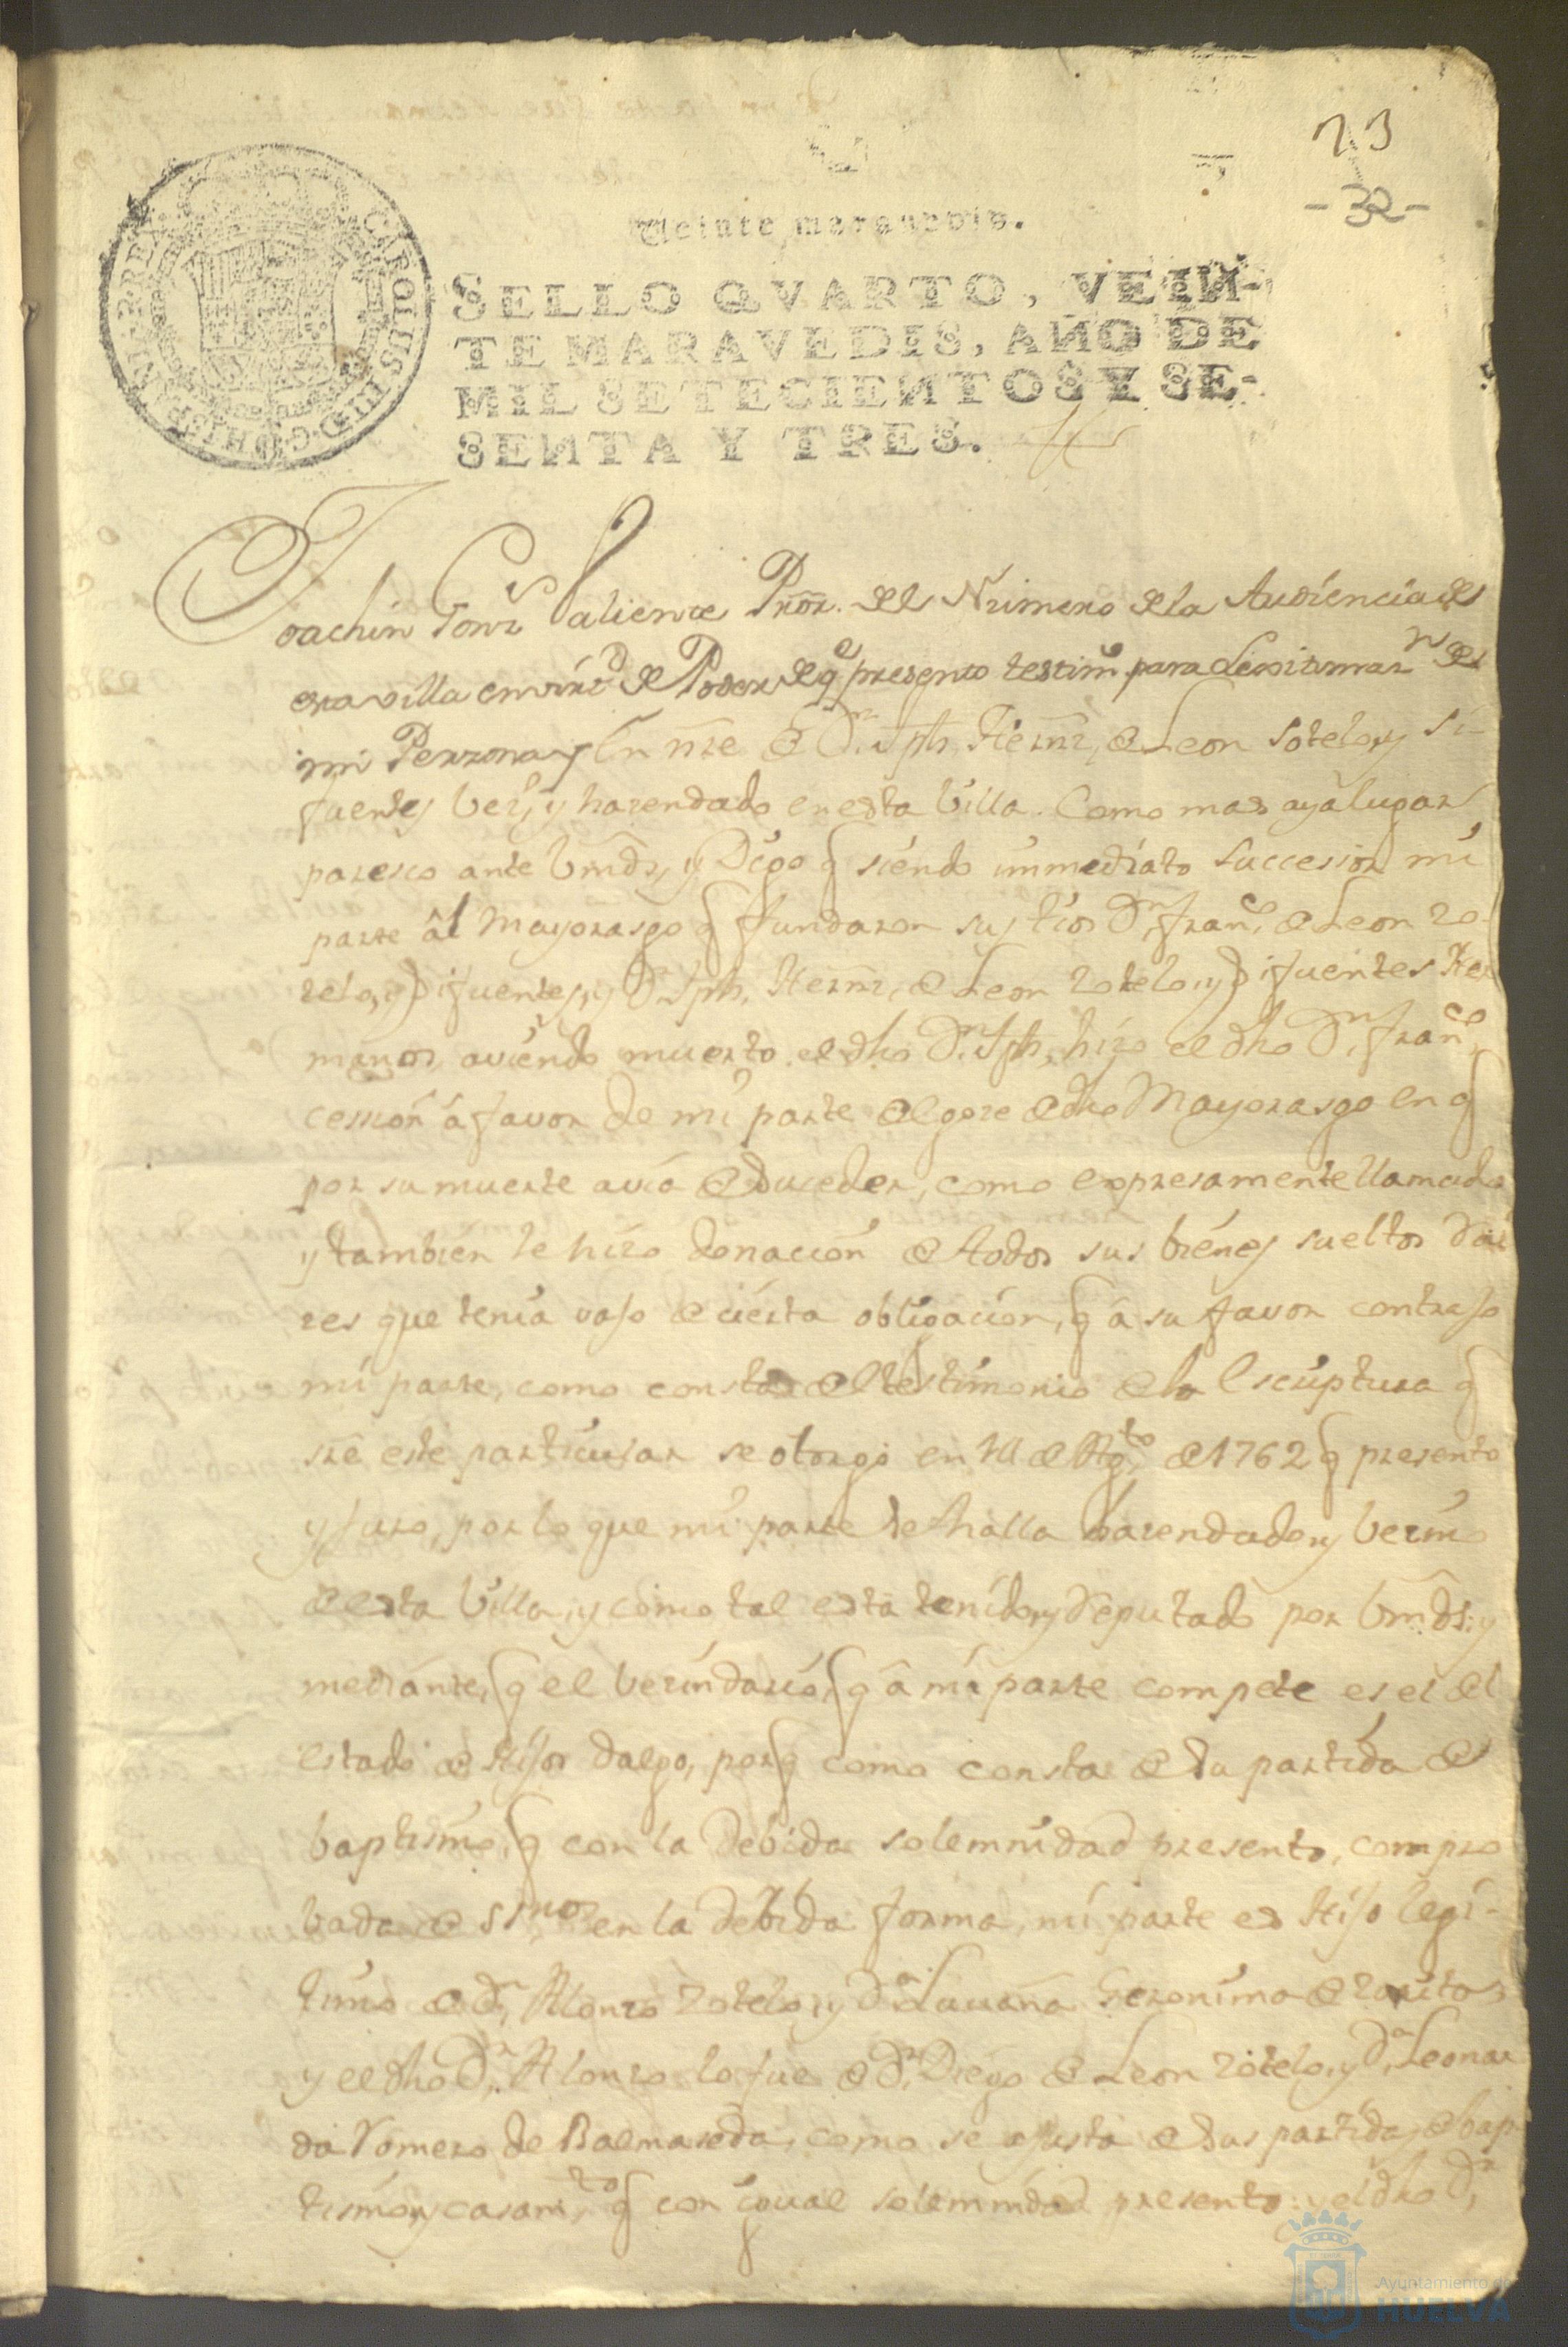 23
-32-
Veinte maravedis.
CAROLUS III D G HISPANIAR REX
SELLO QVARTO, VEIN-
TE MARAVEDIS, AÑO DE
MIL SETECIENTOS Y SE-
SENTA Y TRES.
Joachin Valiente Pror. del Número de la Audiencia de
esta villa en virtd de Poder de q presento testimo para Lexitimar
mi Perzona y En nre de Dn Jph, Hernz, de Leon Sotelo, y Si-
fuentes Vezo, y hazendado en esta Villa. Como mas aya lugar
paresco ante Vmds, y Digo q siendo immediato Succesior mi
parte âl Mayorasgo q fundaron sus tios Dn Franco, de Leon zo-
telo, y Sifuentes, y Dn Jph, Hernz, de Leon zotelo, y Sifuentes Her
manos, aviendo muerto el dho Dn Jph, hizo el dho Dn Franco,
cesion á favor de mi parte del goze de dho Mayorasgo en q
por su muerte avia de suceder, como expresamente llamado
y tambien le hizo donacion de todos sus bienes sueltos
res que tenia vajo de cierta obligacion, q a su favor contrajo
mi parte, como consta del testimonio de la Escriptura q
sre este particular se otorgó en de Agto, de 1762 q presento
y juro, por lo que mi parte se halla hazendado, y Vezino
de esta Villa, y como tal esta tenido, y Reputado por Vmds: y
mediante, q el Vezindario, q â mi parte compete es el del
estado de Hijos dalgo, porq como consta de su partida de
baptismo, q con la debida solemnidad presento, compro
bada de ssnos en la debida forma, mi parte es Hijo legi-
timo de dn, Alonzo zotelo, y Da Luciana Geronima de
y el dho Dn, Alonzo lo fue de Dn, Diego de Leon zotelo, y Da, Leonar
da Romero de Balmaseda, como se ajusta de sus partidas de bap
tismo, y casamto, q con igual solemnidad presento: y el dho Dn,
Ayuntamiento de
HUELVA